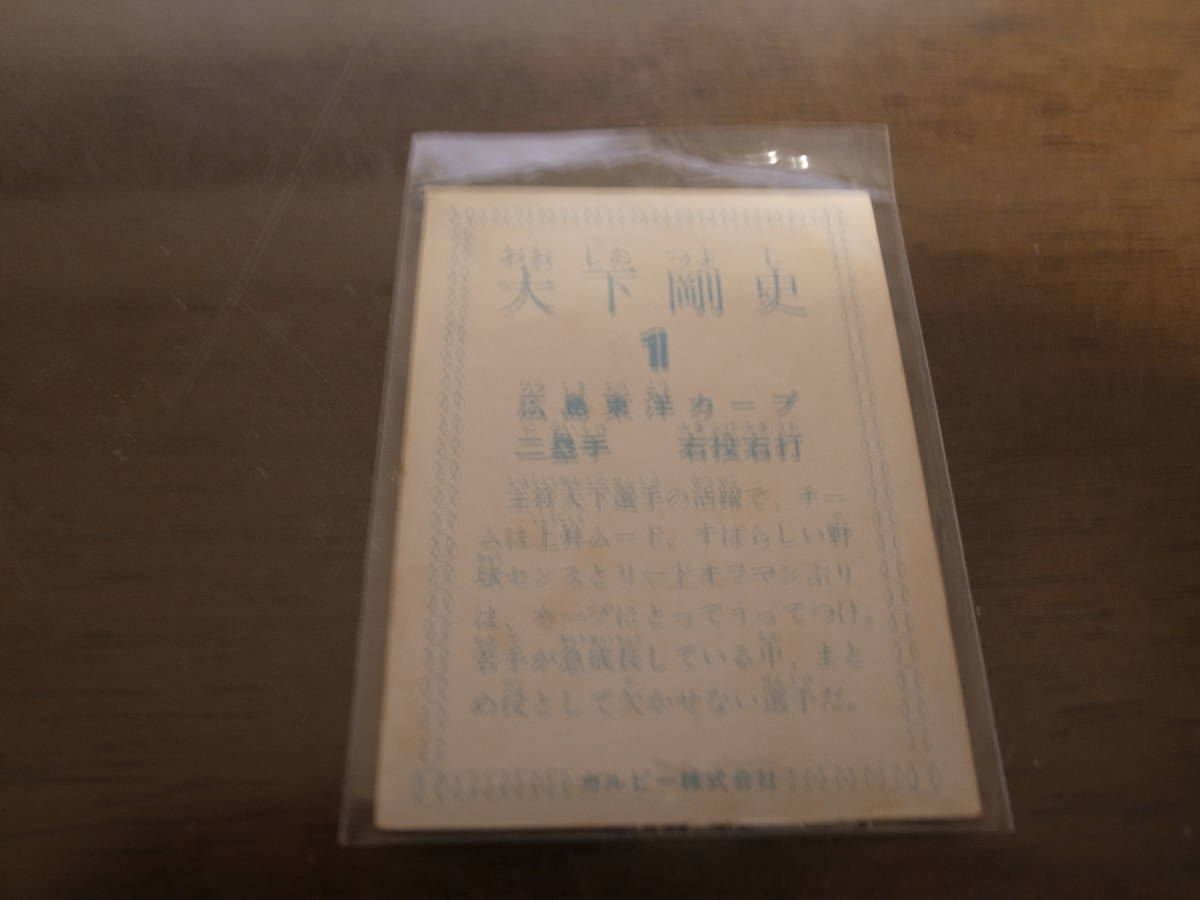 おおしたつよし
大下剛史
1
ひろしまとうよう
広島東洋カープ
二塁手 右投右打
主将大下選手の活躍で、チー
ムは上昇ムード。すばらしい野
球センスとリードオフマンぶり
は、カープにとってうってつけ。
若手が急成長している中、まと
め役として欠かせない選手だ。
カルビー株式会社